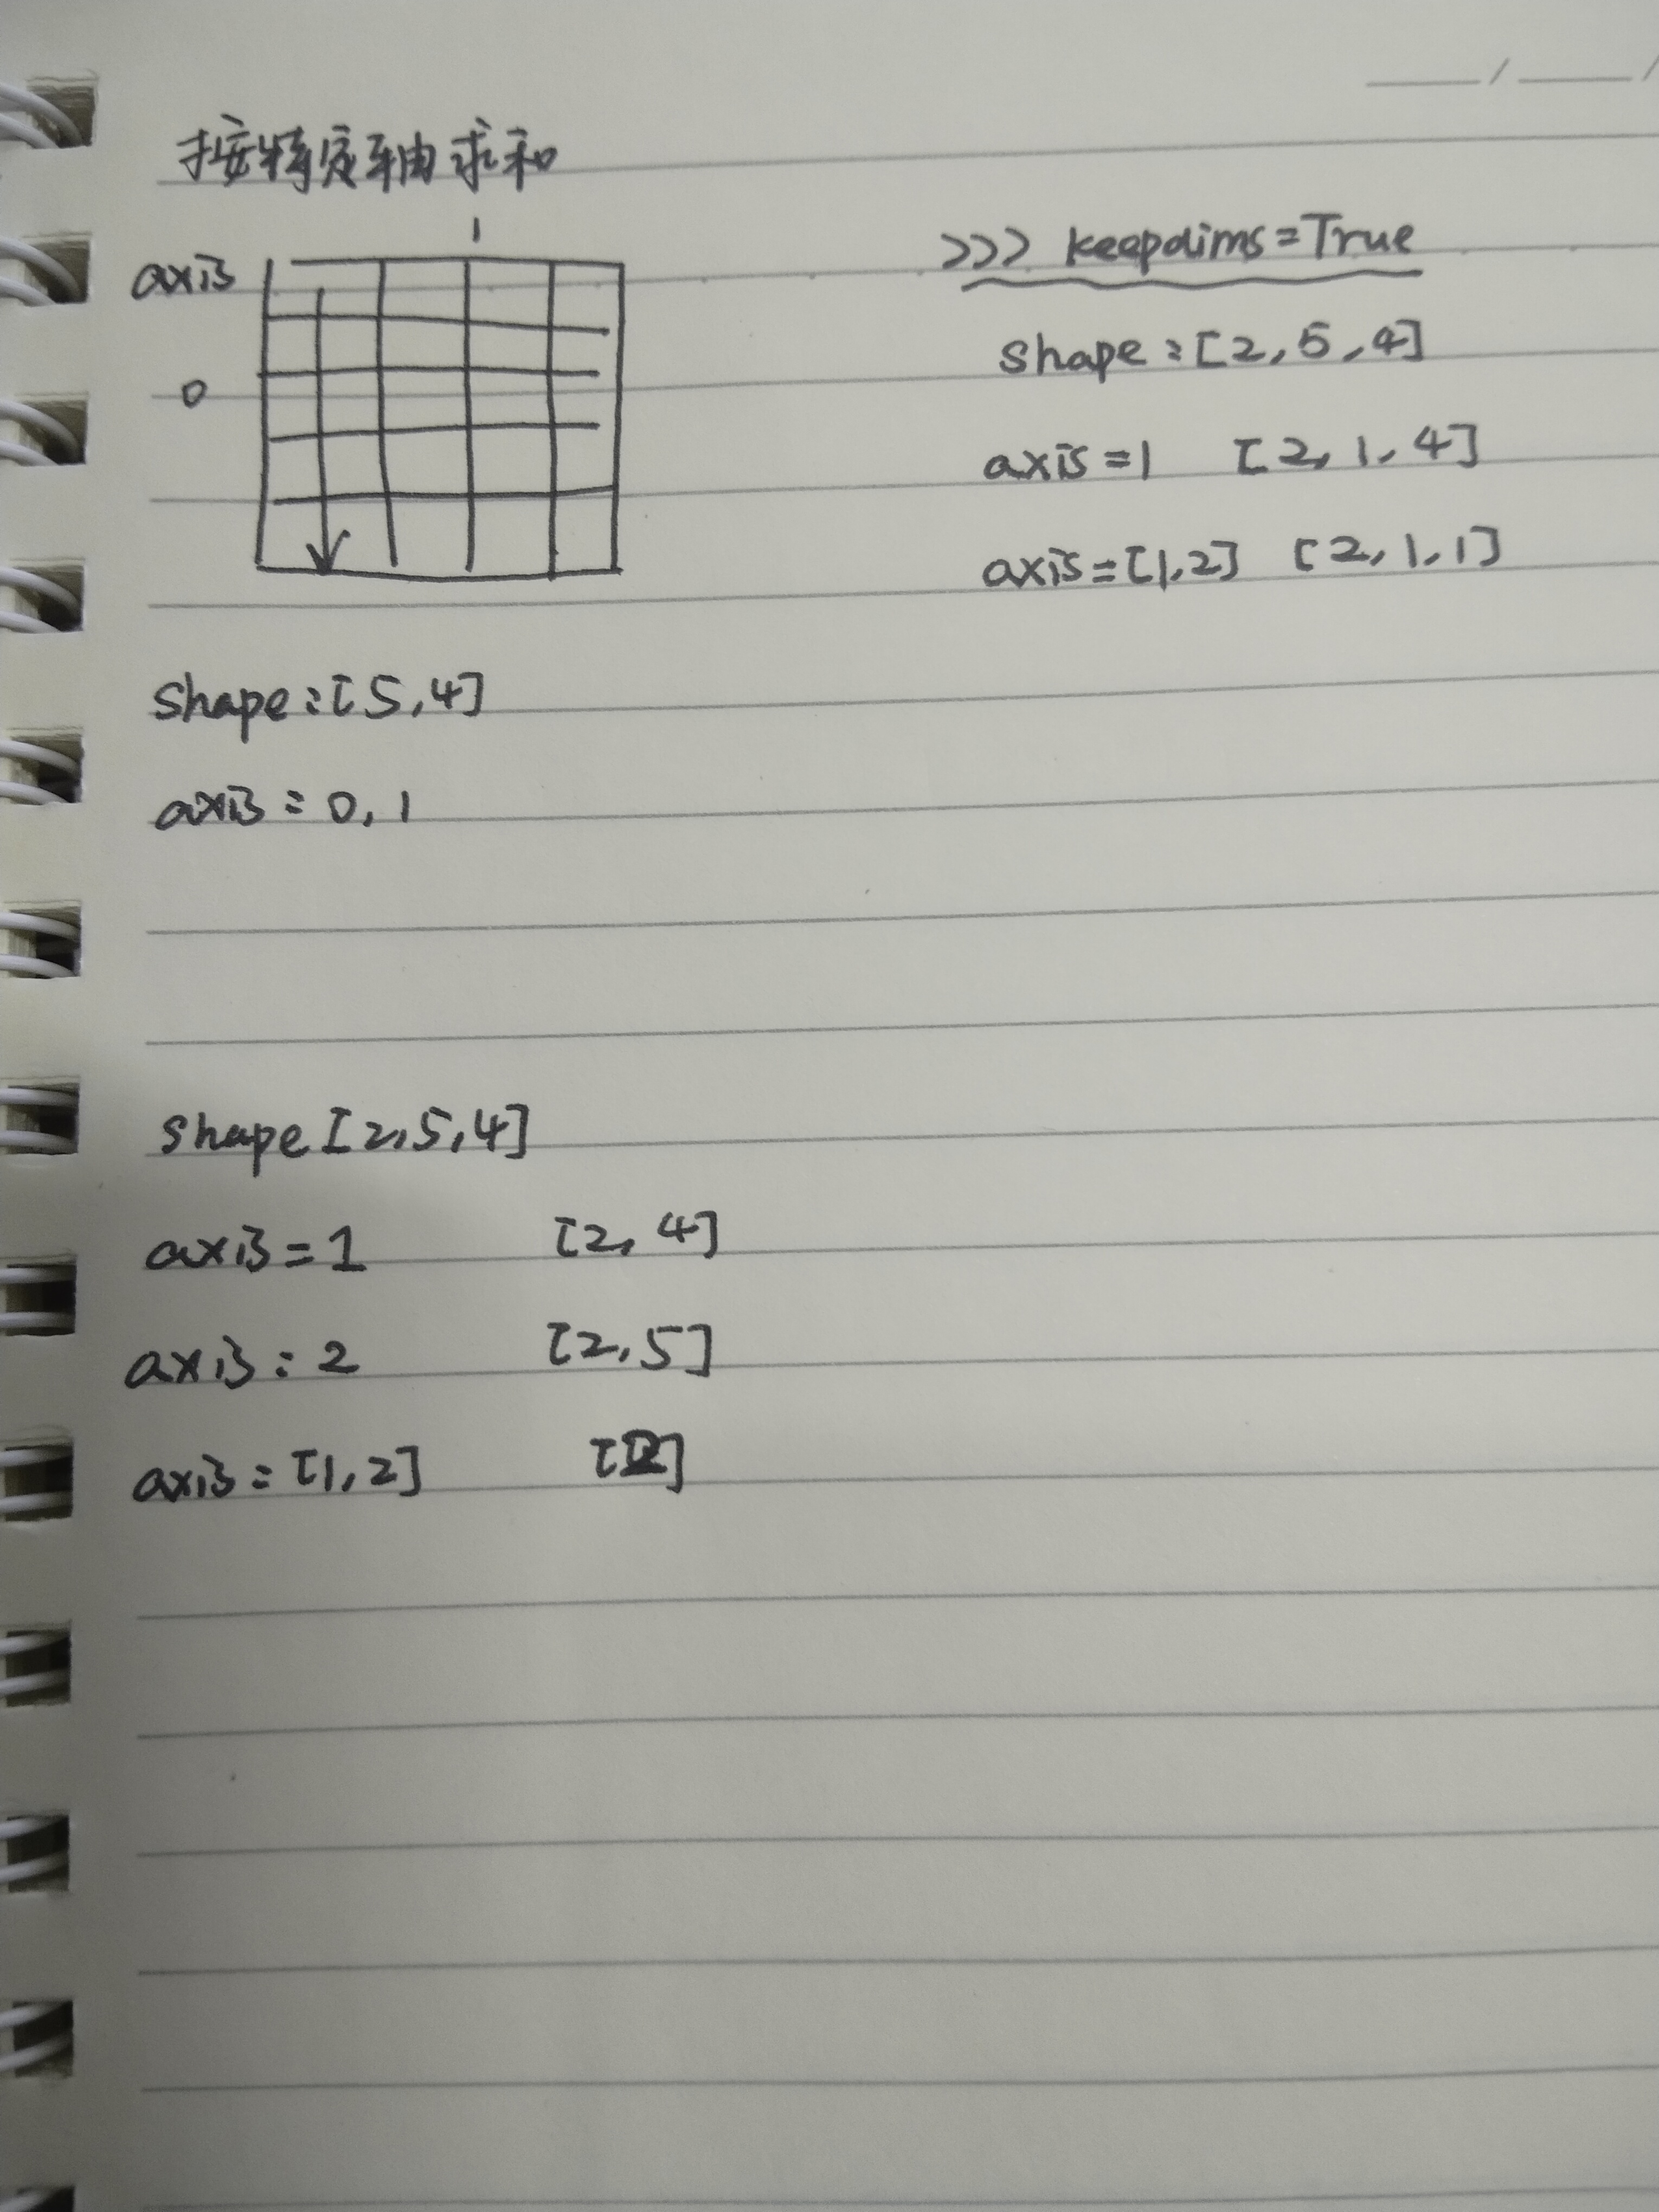 按特定轴求和
1
axis
0
shape:[5,4]
axis = 0, 1
>>> keepdims=True
shape:[2,5,4]
axis=1 [2,1,4]
axis=[1,2] [2,1,1]
shape[2,5,4]
axis=1 [2,4]
axis:2 [2,5]
axis=[1,2] [2]